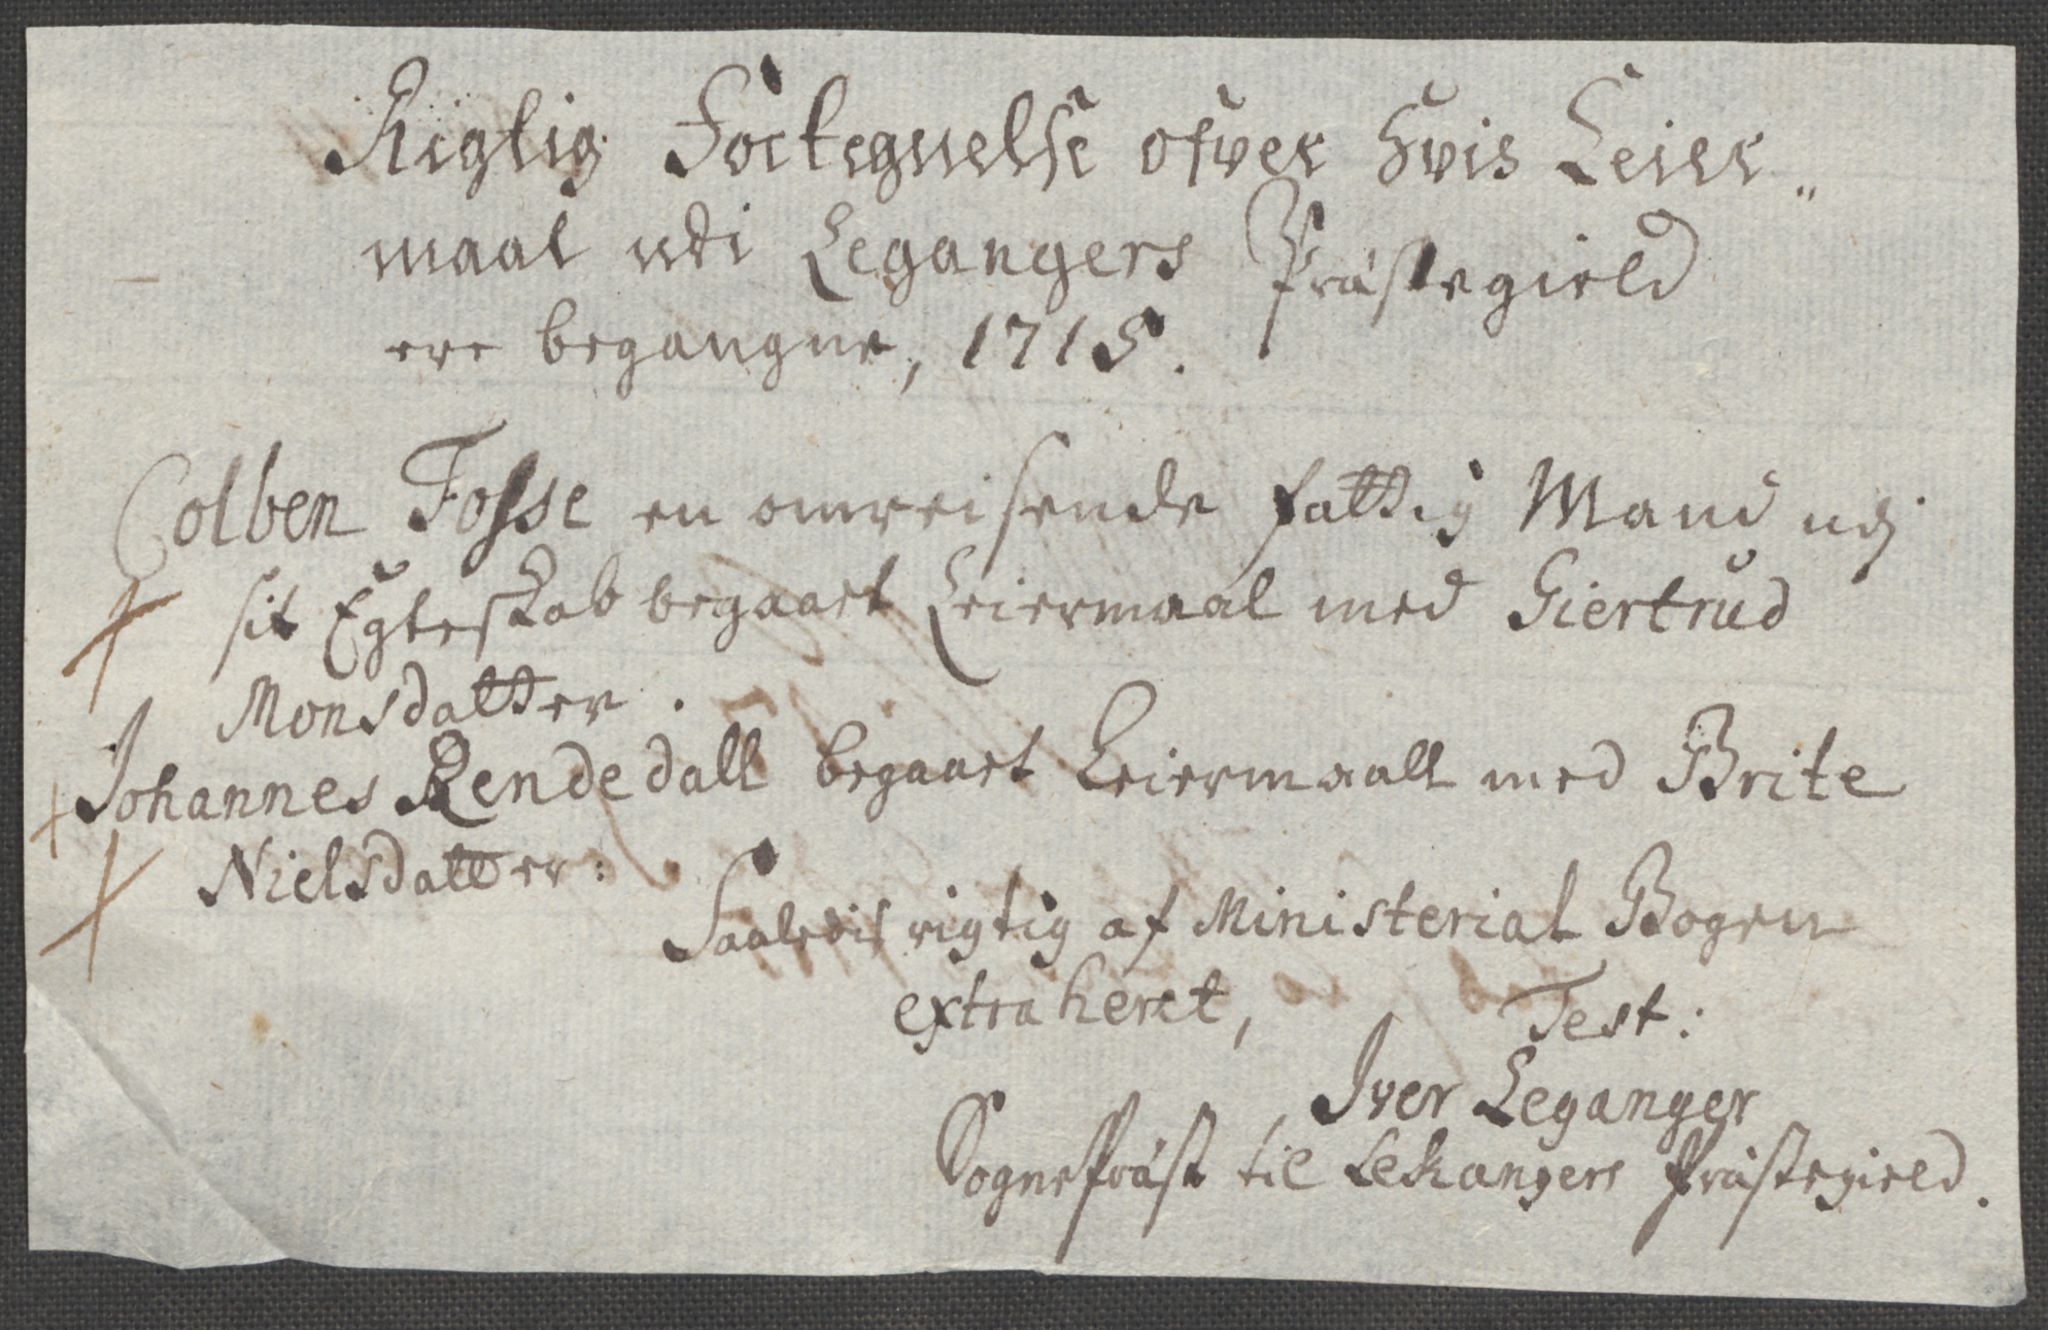 Rigtig Fortegnelse ofver hvis Leier„
maal udi Legangers Præstegield
ere begangne, 1715.
Colben Fosse en omreisende fattig Mand udj
sit Egteskab begaaet Leiermaal med Giertrud
Monsdatter.
Johannes Rendedall begaaet Leiermaall med Brite
Nielsdatter:
Saaledis rigtig af Ministerial Bogen
extraheret, Test:
Iver Leganger
Sognepræst til Lekangers Præstegield.